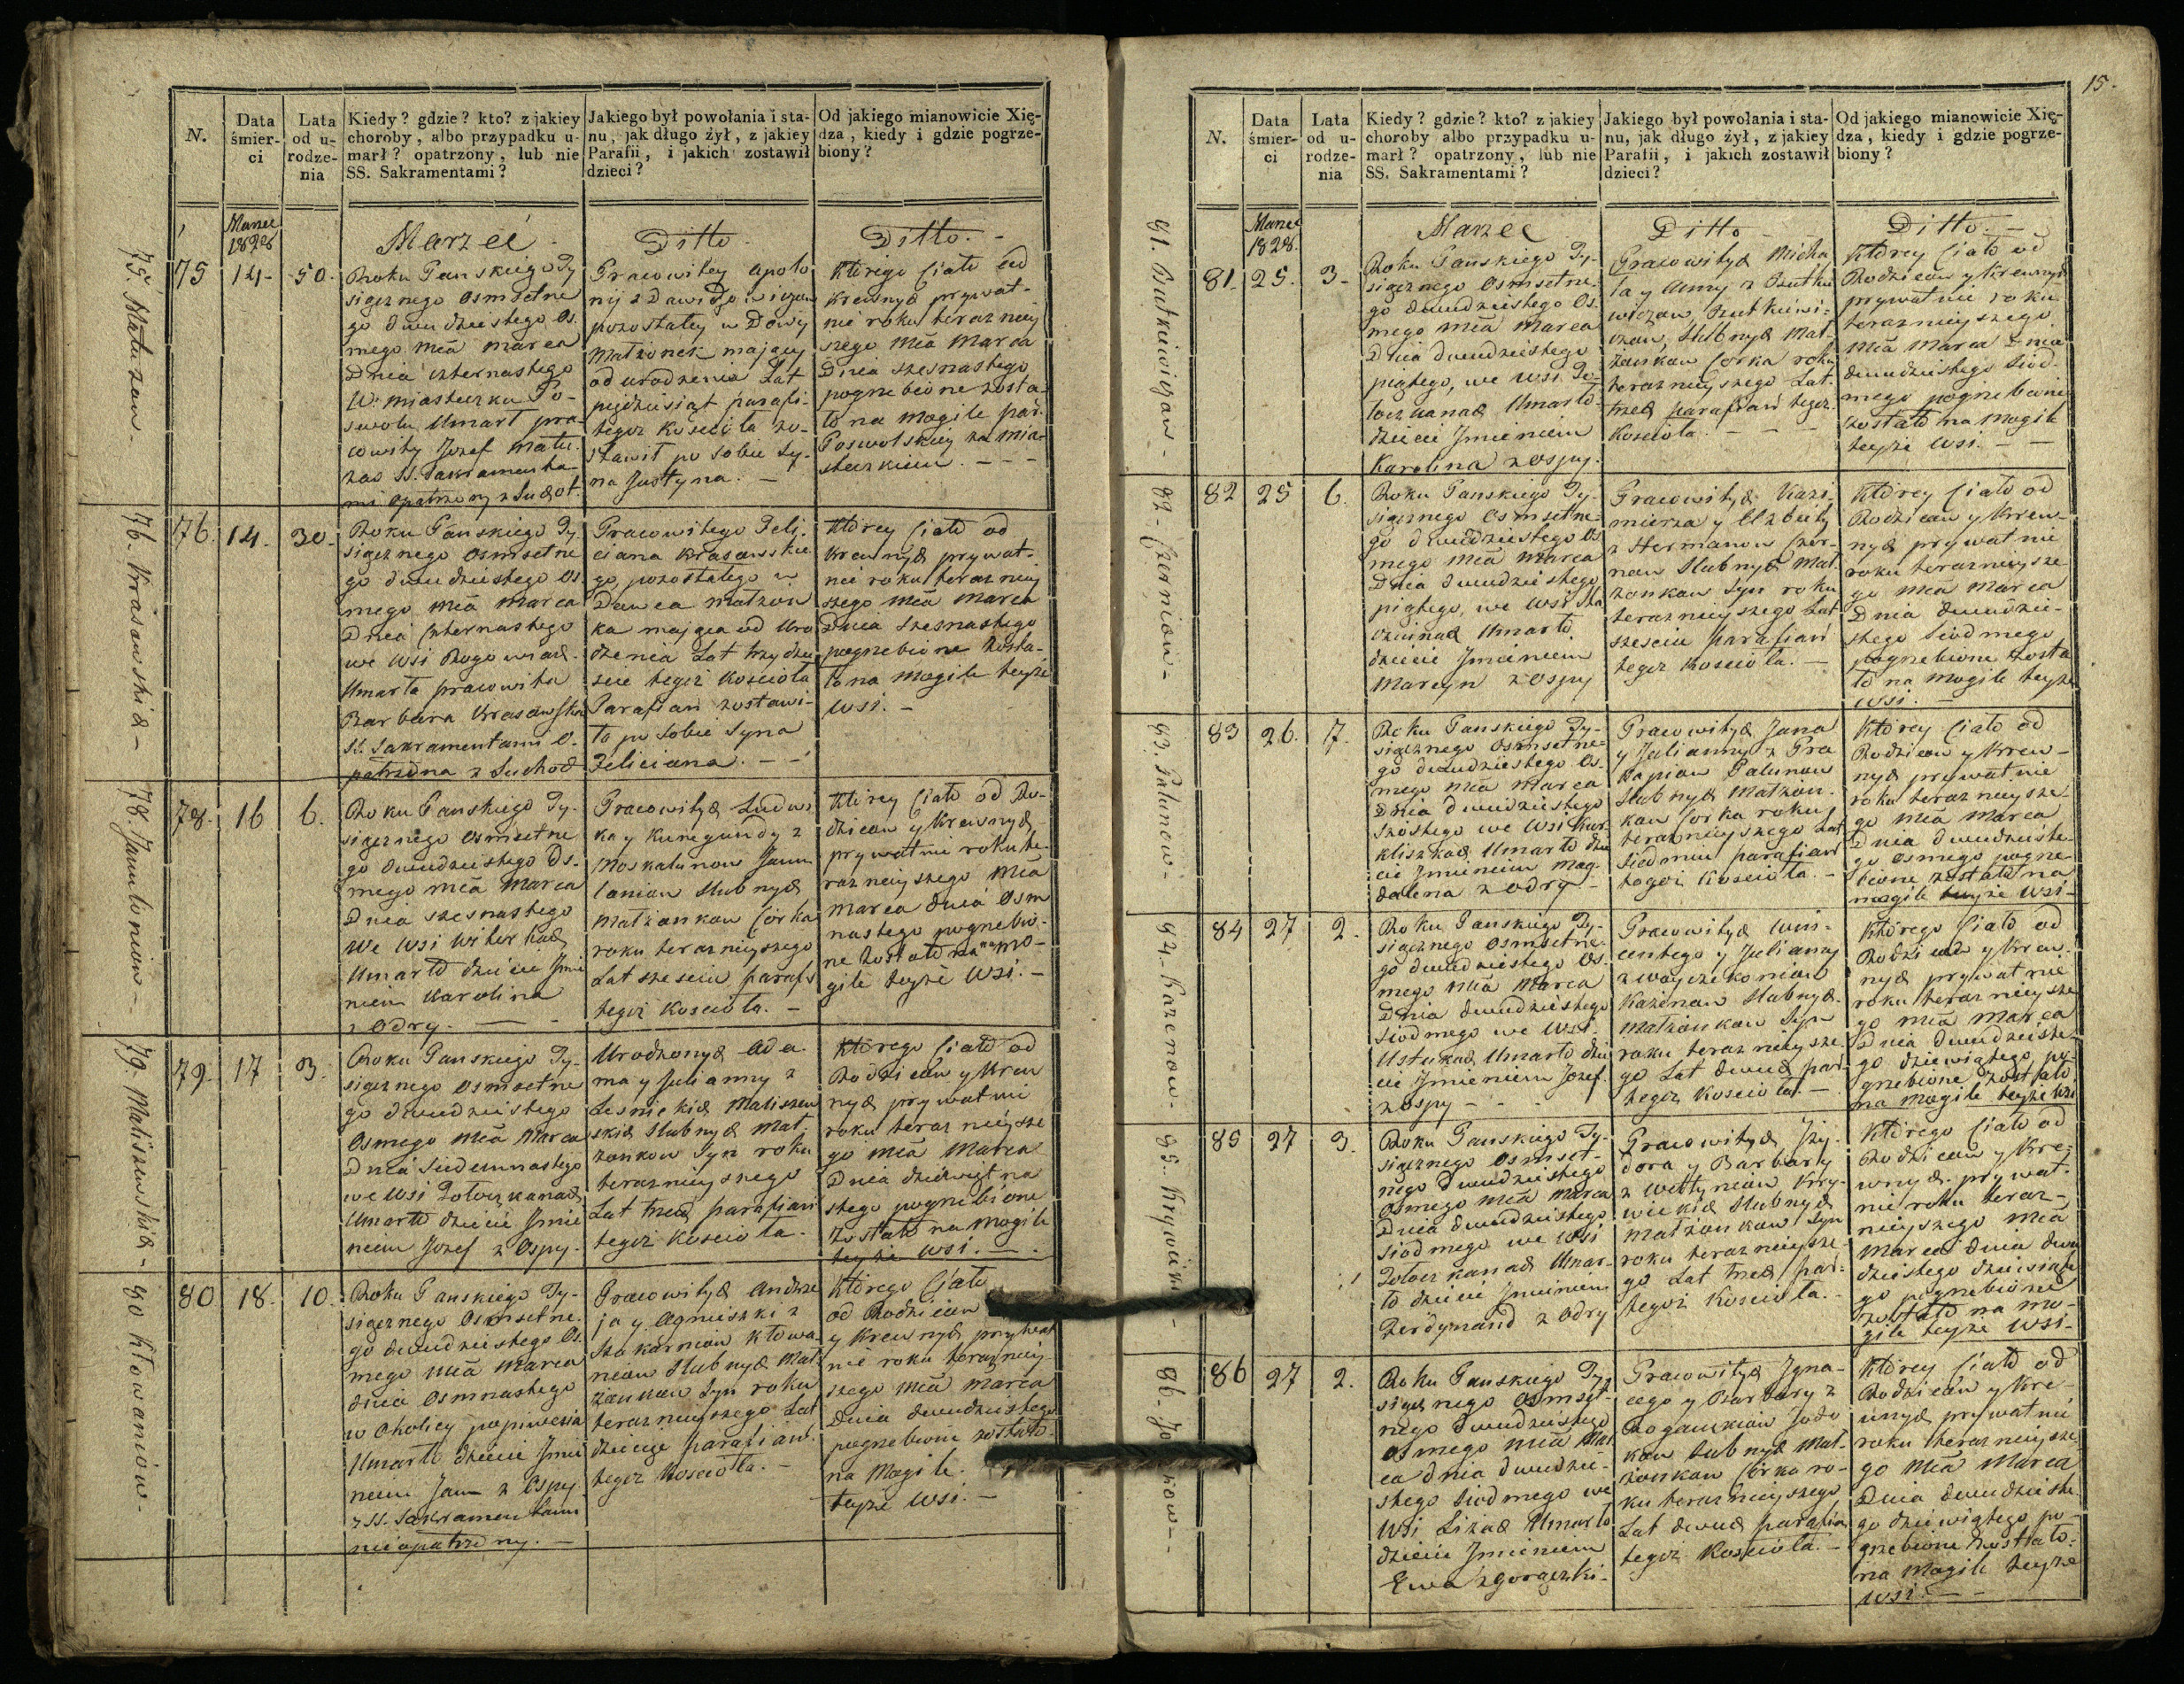 N.
Data śmier-ci
Lata od u-rodze-nia
Kiedy? gdzie? kto? z jakiey
choroby, albo przypadku u-
marł? opatrzony, lub nie
SS. Sakramentami?
Jakiego był powołania i sta-
nu, jak długo żył, z jakiey
Parafii, i jakich zostawił
dzieci?
Od jakiego mianowicie Xię-
dza, kiedy i gdzie pogrze-
biony?
Marzec
1828
Marzec
Ditto
Ditto
75
14
50
Roku Panskiego Ty
siącznego Osmsetne
go dwudziestego Os
mego mca marca
Dnia czternastego
W miasteczku Po-
swolu Umarł pra
cowity Jozef Matu
zas SS. Sakramenta
mi opatrzony z Suchot
Pracowitey Apolo
nij z Dawidowiczow
pozostałey w Dowy
Małżonek maiący
od urodzenia Lat
pięćdziesiąt parafi-
tegoż Kościoła zo-
stawił po sobie Sy-
na Justyna.
Ktorego Ciało od
krewnych prywat-
nie roku terazniey
szego mca Marca
Dnia szesnastego
pogrzebione zosta-
ło na mogile par.
Poswolskiey za mia-
steczkiem.
75. Matuzow
76.
14
30
Roku Panskiego Ty
siącznego Osmsetne
go dwudziestego Os
mego mca marca
Dnia czternastego
we Wsi
Umarła pracowita
Barbara Krasowska
SS. Sakramentami O-
patrzona z Suchod
Pracowitego Feli-
ciana Krasowskie
go, pozostałego w
Dowca małżon
ka maiąca od Uro
dzenia Lat trzydzie
scie tegoż Kościoła
Parafian zostawi-
ła po sobie Syna
Feliciana.
Ktorey Ciało od
krewnych prywat-
nie roku teraz niey
szego mca marca
Dnia szesnastego
pogrzebione zosta-
ło na mogile teyże
Wsi.
76. Krasowskich
78.
16
6.
Roku Panskiego Ty-
siącznego Osmsetne
go dwudziestego Os-
mego mca Marca
Dnia szesnastego
We Wsi
Umarło dziecie Jmie
niem Karolina
z Odry.
Pracowitych Ludwi
ka y Kunegundy z
Moskalunow Jan
Slubnych
Małżonkow Corka
roku teraznieyszego
Lat szesciu paraf
tegoż Kościoła.
Ktorey Ciało od Ro-
dzicow y Krewnych
prywatnie roku te-
raznieyszego mca
marca dnia Osm
nastego pogrzebio-
ne zostało na mo-
gile teyże Wsi.
79.
17
3.
Roku Panskiego Ty-
siącznego Osmsetne
go dwudziestego
Osmego mca Marca
Dnia Siedemnastego
we Wsi
Umarło dziecie Jmie
niem Jozef z Ospy.
Urodzonych Ada-
ma y Julianny z
Lesnickich Maliszew
skich Slubnych Mał-
żonkow Syn roku
teraznieyszego
Lat trzech parafian
tegoż Kościoła.
Ktorego Ciało od
Rodzicow y Krew
nych prywatnie
roku teraz nieysze
go mca Marca
Dnia dziewietna
stego pogrzebione
zostało na mogile
teyże Wsi.
79. Maliszewskich
80
18
10
Roku Panskiego Ty-
siącznego Osmsetne.
go dwudziestego Os.
mego mca Marca
dnia Osmnastego
w Okolicy
Umarło dziecie Jmie
niem Jan z Ospy
z SS. Sakramentami
nieopatrzony.
Pracowitych Andrze
ja y Agnieszki z
Slubnych Mał
żonkow Syn roku
teraznieyszego Lat
dziesięć parafian.
tegoż Kościoła.
Ktorego Ciało
od Rodzicow
y Krewnych prywat
nie roku terazniey
szego mca marca
Dnia dwudziestego
pogrzebione zostało
na Mogile
teyże Wsi.
80 Kłowaniow
15.
N.
Data śmier-ci
Lata od u-rodze-nia
Kiedy? gdzie? kto? z jakiey
choroby albo przypadku u-
marł? opatrzony, lub nie
SS. Sakramentami?
Jakiego był powołania i sta-
nu, jak długo żył, z jakiey
Parafii, i jakich zostawił
dzieci?
Od jakiego mianowicie Xię-
dza, kiedy i gdzie pogrze-
biony?
Marzec
1828.
Marzec
Ditto
Ditto
81.
25.
3
Roku Panskiego Ty-
siącznego Osmsetne.
go dwudziestego Os.
mego mca Marca
Dnia dwudziestego
piątego, we Wsi
Umarło
dziecie Jmieniem
Karolina z Ospy.
Pracowitych Micha
ła y Anny z
Slubnych Mał-
żonkow Corka roku
teraznieyszego Lat
trzech parafian tegoż
Kościoła.
Ktorey Ciało od
Rodzicow y Krewnych
prywatnie roku
teraznieyszego
mca Marca Dnia
dwudziestego Siod-
mego pogrzebione
zostało na mogile
teyże Wsi.
81. Butkiewiczow
82
25
6.
Roku Panskiego Ty-
siącznego Osmsetne-
go dwudziestego Os
mego mca marca
Dnia dwudziestego
piątego, we Wsi
Umarło
dziecie Jmieniem
Marcyn z Ospy
Pracowitych Kazi-
mierza y Elzbiety
z Hermanow Czer-
niow Slubnych Mał.
żonkow Syn roku
teraznieyszego Lat
szesciu parafian
tegoż Kościoła.
Ktorey Ciało od
Rodzicow y Krew-
nych prywatnie
roku teraznieysze
go mca Marca
Dnia dwudzie-
stego Siodmego
pogrzebione zosta
ło na mogile teyże
Wsi.
82. Czerniow
83
26.
7.
Roku Panskiego Ty-
siącznego Osmsetne-
go dwudziestego Os.
mego mca Marca
Dnia dwudziestego
szostego we Wsi Kur-
kliszkach Umarło dzie
cie Jmieniem Mag-
dalena z Odry
Pracowitych Jana
y Julianny z
Palunow
Slubnych Małżon-
kow Corka roku
teraznieyszego Lat
siedmiu parafian
tegoż Kościoła.
Ktorey Ciało od
Rodzicow y Krew-
nych prywatnie
roku teraz nieysze
go mca Marca
Dnia dwudzieste-
go osmego pogrze-
bione zostało na
mogile teyże Wsi
83. Palunow
84
27
2.
Roku Panskiego Ty-
siącznego Osmsetne.
go dwudziestego Os.
mego mca Marca
Dnia dwudziestego
Siodmego we Wsi
Ustukach Umarło dzie
cie Jmieniem Jozef
z Ospy
Pracowitych Win-
centego y Julianny
z
Kazenow Slubnych
Małżonkow Syn
roku teraz nieysze
go Lat dwuch par
tegoż Kościoła.
Ktorego Ciało od
Rodzicow y Krew-
nych prywatnie
roku teraz nieysze
go mca Marca
Dnia dwudzieste-
go dziewiątego po-
grzebione zostało
na mogile teyże Wsi
84. Kazenow
85
27
3.
Roku Panskiego Ty-
siącznego Osmset-
nego dwudziestego
Osmego mca Marca
Dnia dwudziestego
Siodmego we Wsi
Umar-
ło dziecie Jmieniem
Ferdynand z Odry
Pracowitych Jzy-
dora y Barbary
z
Slubnych
Małżonkow Syn
roku teraznieysze-
go Lat trzech par.
tegoż Kościoła.
Ktorego Ciało od
Rodzicow y Kre-
wnych prywat-
nie roku teraz-
nieyszego mca
Marca dnia dwu
dziestego dziewiąte
go pogrzebione
zostało na mo-
gile teyże Wsi
86
27
2.
Roku Panskiego Ty-
siącznego Osmset-
nego dwudziestego
Osmego mca Mar
ca dnia dwudzie-
stego siodmego we
Wsi Umarło
dziecie Jmieniem
Ewa z gorączki.
Pracowitych Jgna-
cego y Barbary z
Slubnych Mał-
żonkow Corka ro-
ku teraznieyszego
Lat dwuch parafian
tegoż Kościoła.
Ktorey Ciało od
Rodzicow y Kre-
wnych prywatnie
roku teraznieysze
go mca Marca
Dnia dwudzieste
go dziewiątego po-
grzebione zostało
na Mogile teyże
Wsi.